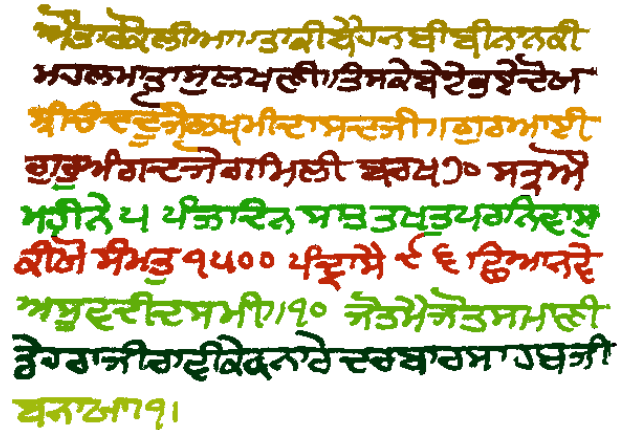 ਬੀਬੀਨਾਨਕੀ
ਮਹਲਮਾਤਾਸੁਲਖਣੀ॥ਤਿਸਕੇਬੇਟੇਹੁਏਦੋਖ
ਸ੍ਰੀਚੰਦਦੂਜੈਲਖਮੀਦਾਸਦਜੀ।ਗੁਰਆਈ
ਗੁਰੂਅੰਗਦਜੋਗਮਿਲੀ ਬਰਖ੭੦ ਸਤ੍ਰਅੋ
ਮਹੀਨੇ ੫ ਪੰਜਾਦਿਨ ਸਭਤਖਤੁਪਰਨਿਵਾਸੁ
ਕੀਓ ਸੰਮਤੁ ੧੫੦੦ ਪੰਦ੍ਰਾਸੈ ੯੬ ਛਿਆਨਵੇ
ਅਸੁਵਦੀਦਸਮੀ॥੧੦ ਜੋਤਮੈਜੋਤਸਮਾਣੀ
ਡੇਹਰਾਜੀਰਾਵੀਕੇਕਨਾਰੇ ਦਰਬਾਰਸਾਹਬਜੀ
ਬਨਾਆ॥੧।